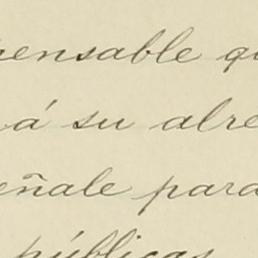 pensable qu
á su alre
eñale para
públicas